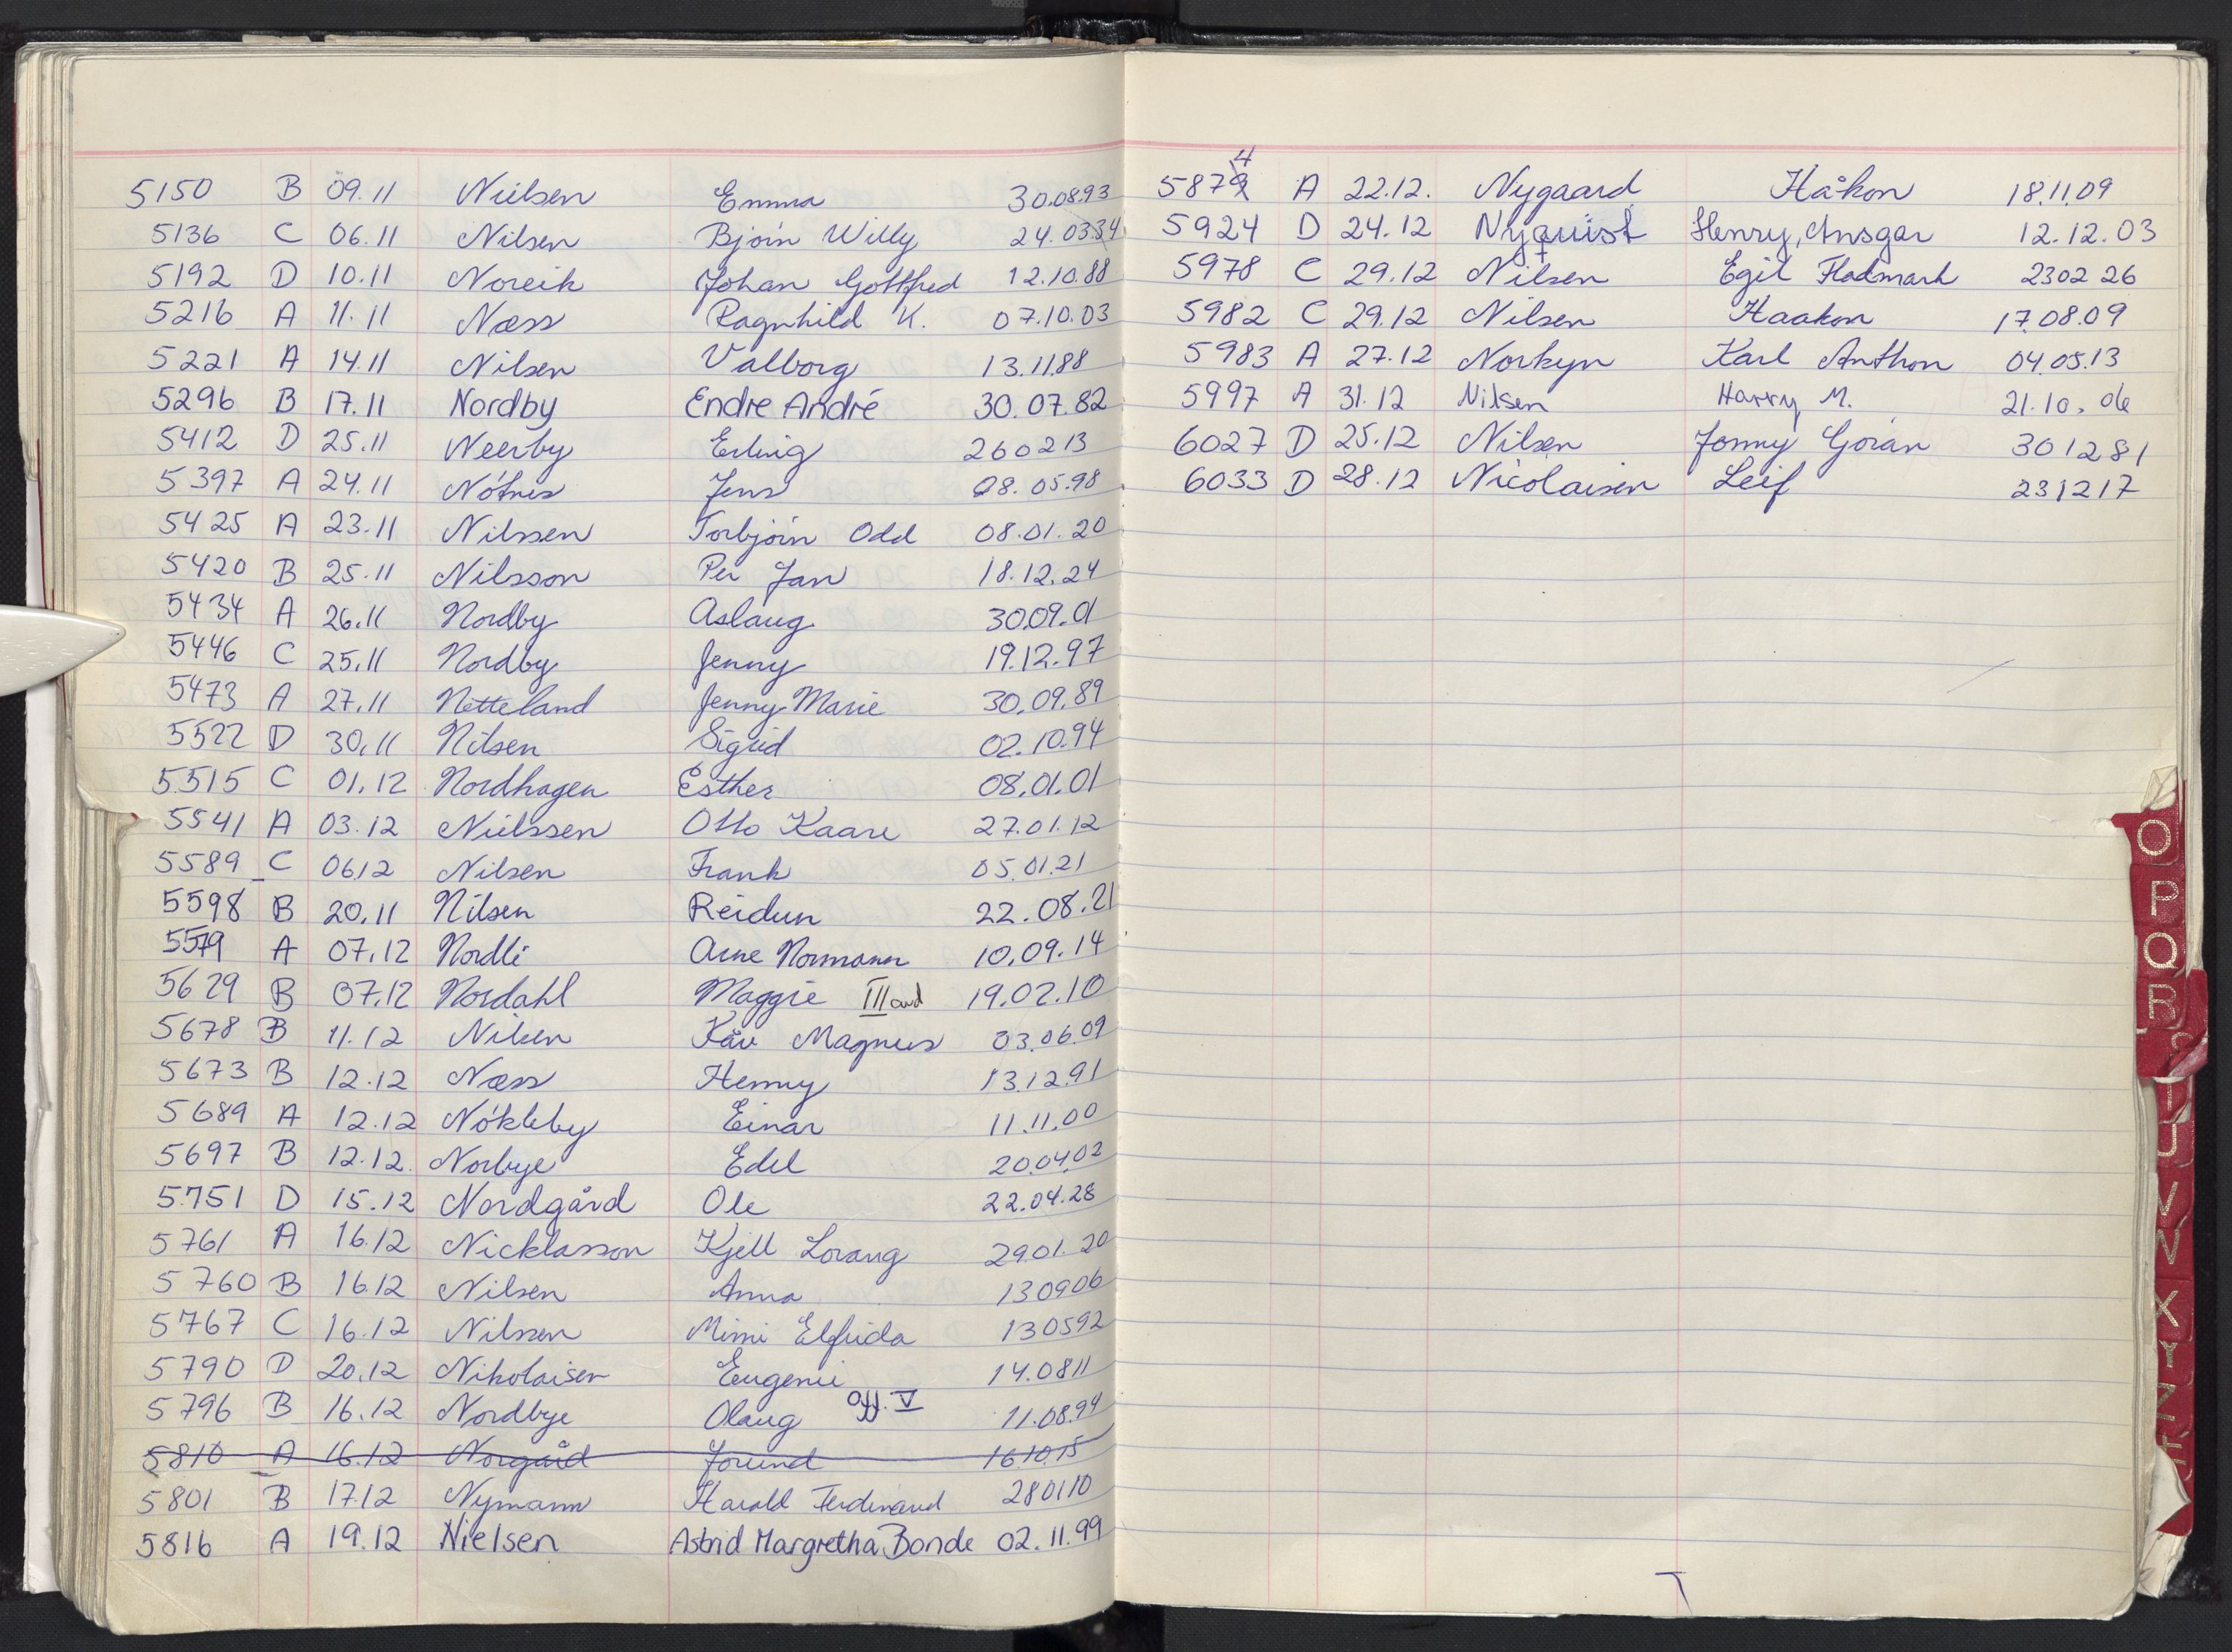 5150 B 09.11 Nielsen Emma 30.08.93
5136 C 06.11 Nilsen Bjørn Willy 24.03.34
5192 D 10.11 Noreik Johan Gottfred 12.10.88
5216 A 11.11 Næss Ragnhild K. 07.10.03
5221 A 14.11 Nilsen Valborg 13.11.88
5296 B 17.11 Nordby Endre André 30.07.82
5412 D 25.11 Neerby Erling 260213
5397 A 24.11 Nøtnes Jens 28.05.98
5425 A 23.11 Nilssen Torbjørn Odd 08.01.20
5420 B 25.11 Nilsson Per Jan 18.12.24
5434 A 26.11 Nordby Aslaug 30.09.01
5446 C 25.11 Nordby Jenny 19.12.97
5473 A 27.11 Netteland Jenny Marie 30.09.89
5522 D 30.11 Nilsen Sigrid 02.10.94
5515 C 01.12 Nordhagen Esther 08.01.01
5541 A 03.12 Nielssen Otto Kaare 27.01.12
5589 C 06.12 Nilsen Frank 05.01.21
5598 B 20.11 Nilsen Reidun 22.08.21
5579 A 07.12 Nordli Arne Normann 10.09.14
5629 B 07.12 Nordahl Maggie III avd 19.02.10
5678 B 11.12 Nilsen Kåre Magnus 03.06.09
5673 B 12.12 Næss Henny 13.12.91
5689 A 12.12 Nøkleby Einar 11.11.00
5697 B 12.12. Norbye Edel 20.04.02
5751 D 15.12 Nordgård Ole 22.04.28
5761 A 16.12 Nicklasson Kjell Lorang 29.01.20
5760 B 16.12 Nilsen Anna 130906
5767 C 16.12 Nilssen Mimi Elfrida 130592
5790 D 20.12 Nikolaisen Eugenie 14.0811
5796 B 16.12 Nordbye Olaug Off. V 11.08.94
5810 A 16.12 Norgård Jorund 16.10.15
5801 B 17.12 Nymann Harald Ferdinand 280110
5816 A 19.12 Nielsen Astrid Margretha Bonde 02.11.99
4
5879 A 22.12. Nygaard Håkon 18.11.09
5924 D 24.12 Nyquist Henry, Ansgar 12.12.03
5978 C 29.12 Nilsen Egil Fladmark 230226
5982 C 29.12 Nilsen Haakon 17.08.09
5983 A 27.12 Norkyn Karl Anthon 04.05.13
5997 A 31.12 Nilsen Harry M. 21.10.06
6027 D 25.12 Nilsen Jonny Gøran 301281
6033 D 28.12 Nicolaisen Leif 231217
O
P
Q
R
U
V
X
Y
Z